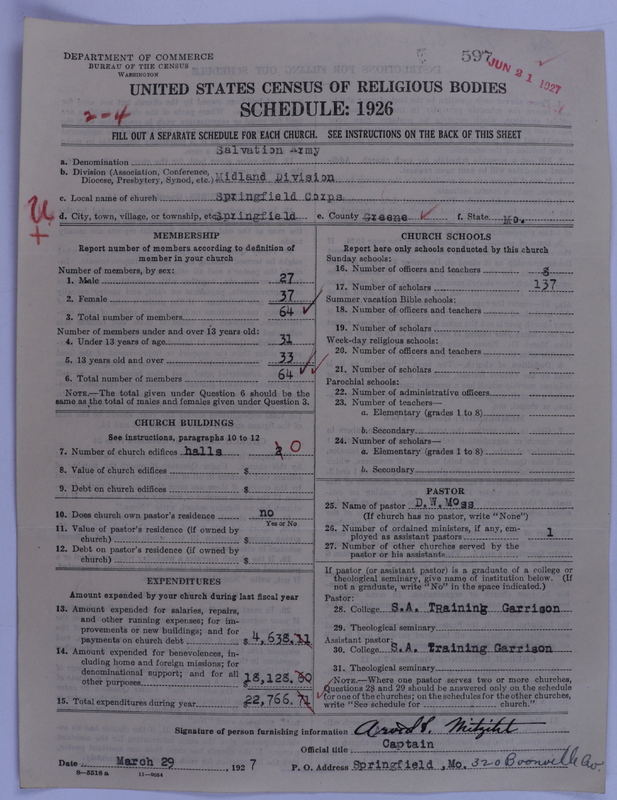 DEPARTMENT OF COMMERCE
BUREAU OF THE CENSUS
WASHINGTON
597
JUN 21 1927
UNITED STATES CENSUS OF RELIGIOUS BODIES
SCHEDULE: 1926
2-4
FILL OUT A SEPARATE SCHEDULE FOR EACH CHURCH. SEE INSTRUCTIONS ON THE BACK OF THIS SHEET
a. Denomination Salvation Army
b. Division (Association, Conference, Diocese, Presbytery, Synod, etc.) Midland Division
c. Local name of church Springfield Corps
d. City, town, village, or township, etc. Springfield e. County Greene f. State Mo.
MEMBERSHIP
Report number of members according to definition of
member in your church
Number of members, by sex:
1. Male 27
2. Female 37
3. Total number of members 64
Number of members under and over 13 years old:
4. Under 13 years of age 31
5. 13 years old and over 33
6. Total number of members 64
NOTE.—The total given under Question 6 should be the
same as the total of males and females given under Question 3.
CHURCH BUILDINGS
See instructions, paragraphs 10 to 12
7. Number of church edifices halls 2 0
8. Value of church edifices $
9. Debt on church edifices $
10. Does church own pastor's residence no
Yes or No
11. Value of pastor's residence (if owned by
church) $
12. Debt on pastor's residence (if owned by
church) $
EXPENDITURES
Amount expended by your church during last fiscal year
13. Amount expended for salaries, repairs,
and other running expenses; for im-
provements or new buildings; and for
payments on church debt $4,638.
14. Amount expended for benevolences, in-
cluding home and foreign missions; for
denominational support; and for all
other purposes $18,128.
15. Total expenditures during year $22,766.71
CHURCH SCHOOLS
Report here only schools conducted by this church
Sunday schools:
16. Number of officers and teachers 8
17. Number of scholars 137
Summer vacation Bible schools:
18. Number of officers and teachers
19. Number of scholars
Week-day religious schools:
20. Number of officers and teachers
21. Number of scholars
Parochial schools:
22. Number of administrative officers
23. Number of teachers—
a. Elementary (grades 1 to 8)
b. Secondary
24. Number of scholars—
a. Elementary (grades 1 to 8)
b. Secondary
PASTOR
25. Name of pastor D.W.Moss
(If church has no pastor, write "None")
26. Number of ordained ministers, if any, em-
ployed as assistant pastors 1
27. Number of other churches served by the
pastor or his assistants
If pastor (or assistant pastor) is a graduate of a college or
theological seminary, give name of institution below. (If
not a graduate, write "No" in the space indicated.)
Pastor:
28. College S.A. TRaining Garrison
29. Theological seminary
Assistant pastor:
30. College S.A. Training Garrison
31. Theological seminary
NOTE.—Where one pastor serves two or more churches,
Questions 28 and 29 should be answered only on the schedule
for one of the churches; on the schedules for the other churches,
write "See schedule for church."
Signature of person furnishing information
Official title Captain
Date March 29, 1927 P. O. Address Springfield, Mo. 320 Boonville Av.
8—5518 a 11—9054